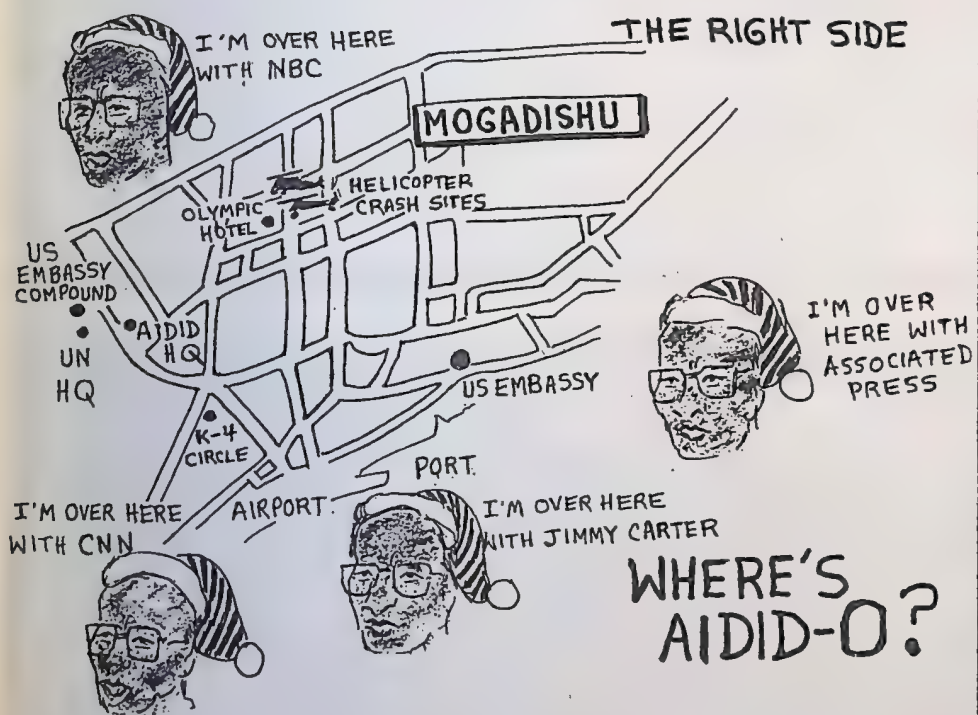 THE RIGHT SIDE
I'M OVER HERE
WITH NBC
MOGADISHU
HELICOPTER
CRASH SITES
OLYMPIC
HOTEL
US
EMBASSY
COMPOUND
AIDID
HQ
UN
HQ
US EMBASSY
K-4
CIRCLE
I'M OVER
HERE WITH
ASSOCIATED
PRESS
PORT.
AIRPORT.
I'M OVER HERE
WITH CNN
I'M OVER HERE
WITH JIMMY CARTER
WHERE'S
AIDID-O?